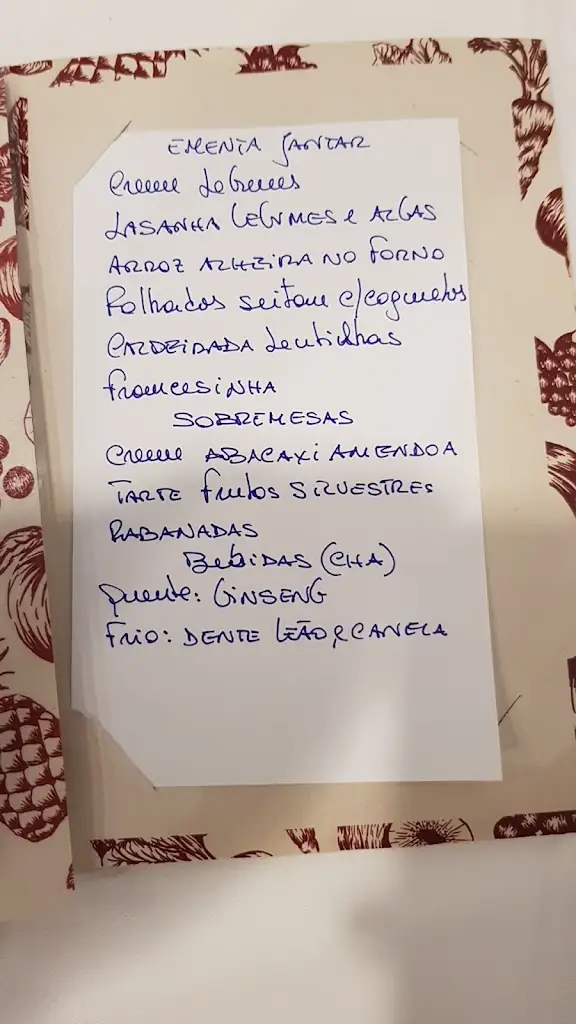 EMENTA JANTAR
Creme Legumes
LASANHA LEGUMES e ALGAS
ARROZ ALHEIRA NO FORNO
Folhados seitan c/cogumelos
CALDEIRADA Lentilhas
francesiNHA
SOBREMESAS
Creme ABACAXI AMENDOA
TARTE frutos SILVESTRES
RABANADAS
BebiDAS (CHA)
Quente: GINSENG
Frio: DENTE LEÃO e CANELA